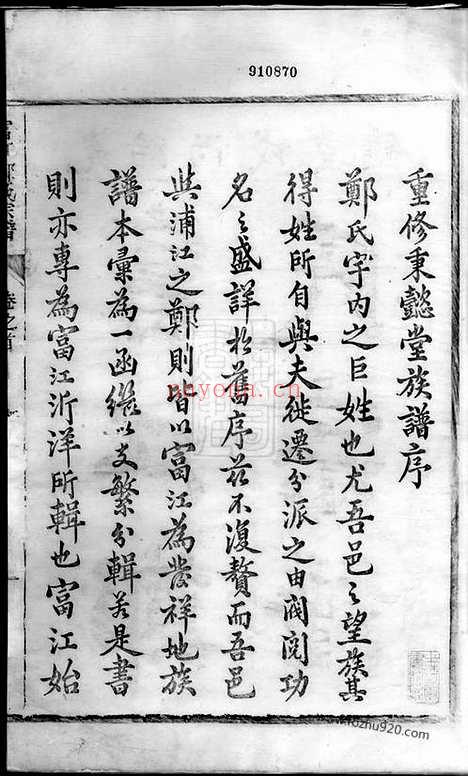 910870
重修秉懿堂族譜序
鄭氏宇內之巨姓也尤吾邑之望族其
得姓所自與夫徙遷分派之由閥閱功
名之盛詳於舊序茲不復贅而吾邑
與浦江之鄭則皆以富江為發祥地族
譜本彙為一函繼以支繁分輯若是書
則亦專為富江沂洋所輯也富江始
鄭氏宗譜
卷之首
nhyona.cn
mozhu920.com